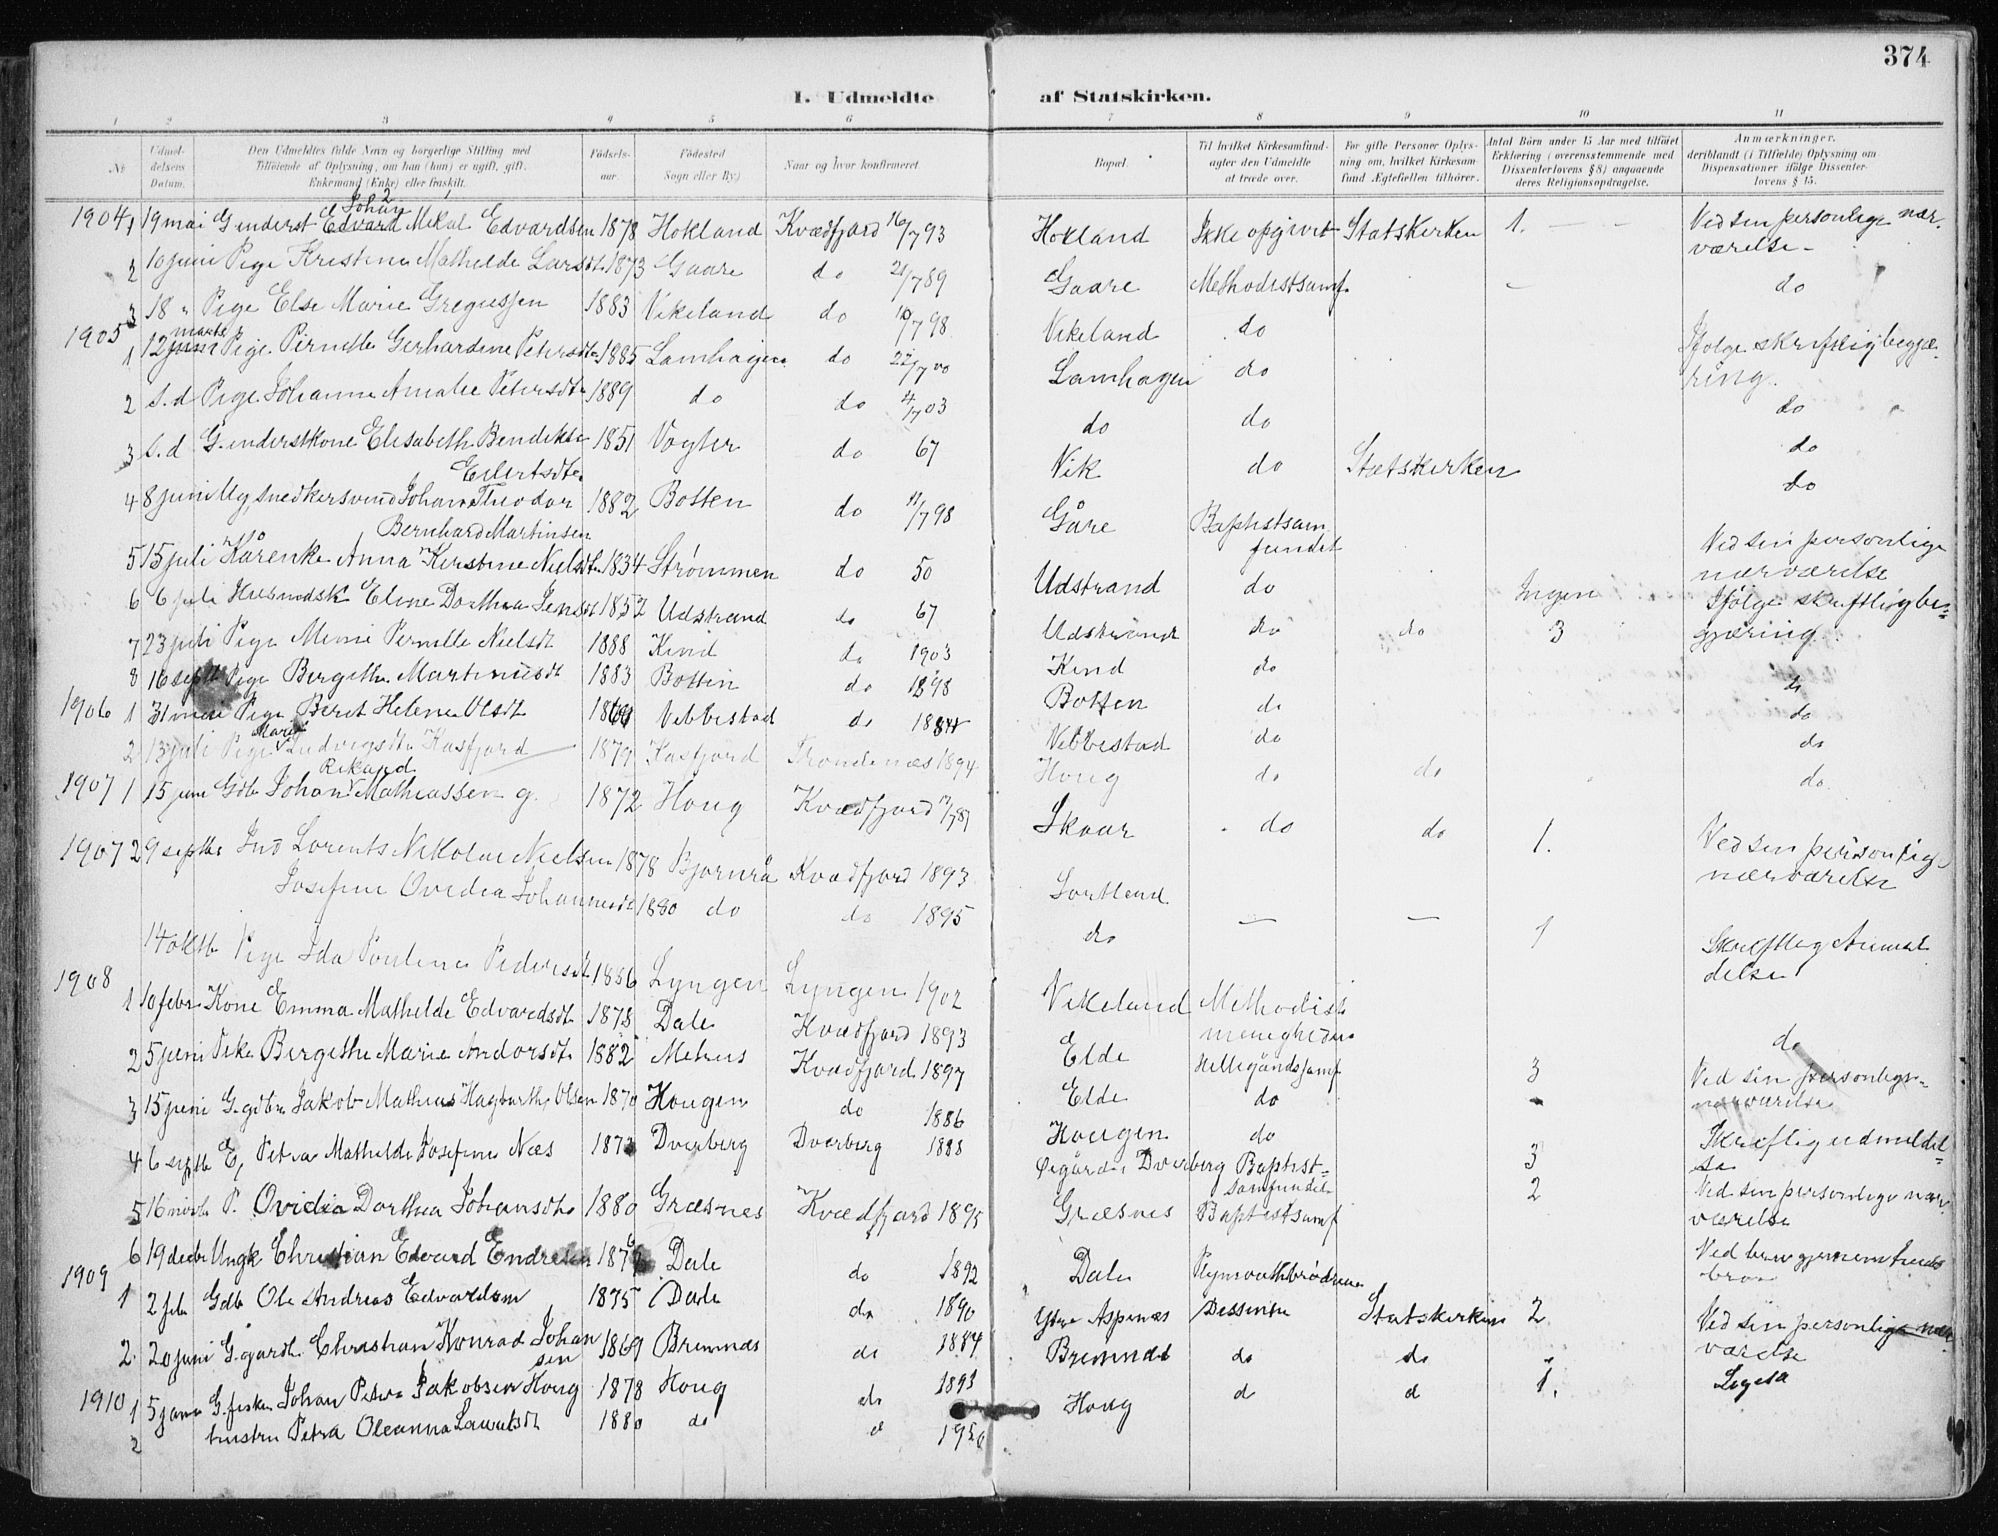 374
1. Udmeldte af Statskirken.
1 2 3 4 5 6 7 8 9 10 11
№
Udmel-
delsens
Datum.
Den Udmeldtes fulde Navn og borgerlige Stilling med
Tilföiende af Oplysning, om han (hun) er ugift, gift,
Enkemand (Enke) eller fraskilt.
Födsels-
aar.
Födested
Sogn eller By.)
Naar og hvor konfirmeret
Bopæl.
Til hvilket Kirkesamfund-
agter den Udmeldte
at træde over.
For gifte Personer Oplys-
ning om, hvilket Kirkesam
fund Ægtefællen tilhörer.
Antal Börn under 15 Aar med tilföiet
Erklæring (overensstemmende med
Dissenterlovens § 8) angaaende
deres Religionsopdragelse.
Anmærkninger,
deriblandt (i Tilfælde) Oplysning om
Dispensationer ifölge Dissenter-
lovens § 15.
1904 1 19 mai G. inderst Edvard Johan Mikal Edvardsen 1878 Hokland Kvædfjord 16/7 93 Hokland Ikke opgivet Statskirken 1. Ved sin personlige nær-
værelse
2 10 juni Pige Kristine Mathilde Larsdt. 1873 Gaare do 21/7 89 Gaare Methodistsamf. — do
3 18 " Pige Else Marie Gregussen 1883 Vikeland do 10/7 98 Vikeland do
1905 1 12 marts Pige Pernelle Gerhardine Petersdtr 1885 Lamhagen do 22/7 00 Lamhagen do Ifølge skriftlig begjæ-
ring.
2 s.d Pige Johanne Amalie Petersdtr 1889 do do 4/7 03 do do do
3 s.d G. inderstkone Elisabeth Bendikte 1851 Vogter do 67 Vik do Statskirken do
Eilertsdtr.
4 8 juni Ug, snedkersvend Johan Theodor 1882 Botten do 11/7 98 Gåre Baptistsam do
Bernhard Martinsen fundet
5 15 juli Kårenke Anna Kirstine Nielsdtr 1834 Strømmen do 50 Udstrand do Ingen Ved sin personlige
nærværelse
6 6 juli Husmdsk Eline Dorthea Jensdt 1852 Udstrand do 67 Udstrand do do 3 Ifølge skriftlig be-
gjæring
7 23 juli Pige Minni Pernille Nielsdt 1888 Kind do 1903 Kind do do
8 16 sept Pige Bergithe Martinusdt 1883 Botten do 1898 Botten do do
1906 1 31 mai Pige Beret Helene Olsdt Vebbestad do Vebbestad do do
2 13 juli Pige Marie Ludvigsdtr Kasfjord 1879 Kasfjord Trondenæs 1894 Houg do do do
1907 1 15 juni Gdb Johan Rikard Mathiassen g. 1872 Houg Kvædfjord Skaar do do 1. Ved sin personlige
nærværelse
1907 2 9 septbr Ind Lorents Nikolai Nielsen 1878 Bjørnrå Kvædfjord 1893 Sortland
Josefine Ovidia Johannesdt 1880 do do 1895 do — — 1 Skriftlig Anmel
delse
14 oktb Pige Ida Pouline Pedersdt 1886 Lyngen Lyngen 1902 Vikeland Methodist
menigheden do
1908 1 10 febr Kone Emma Mathilde Edvardsdt 1878 Dale Kvædfjord 1893 Elde Helligåndssamf 3 Ved sin personlige
nærværelse
2 5 juni Pike Bergithe Marie Andorsdt 1882 Melnes Kvædfjord 1897 Elde do
3 15 juni G. gdbr Jakob Mathias Hagbarth Olsen 1870 Hougen do 1886 Hougen do 3 Skriftlig udmeldel-
se
4 6 septb E, Petra Mathilde Josefine Næs Dverberg Dverberg 1888 Øigården Dverberg Baptist-
samfundet 2 Ved sin personlige nær
værelse
5 16 novb P. Ovidia Dorthea Johansdtr 1880 Græsnes Kvædfjord 1895 Græsnes Baptistsamf
6 19 decbr Ungk Christian Edvard Endresen Dale do 1892 Dale Plymouthbrødrene Ved brev gjennem
1909 1 2 feb Gdb Ole Andreas Edvardsen 1875 Dale do 1890 Ytre Aspenæs Dissenter Statskirken 2 Ved sin personlige nær
værelse
2 20 juni G. gardb Christian Konrad Johan 1869 Bremnes do 1884 Bremnes do do
sen
1910 1 5 janr G. fisker Johan Peter Jakobsen Houg 1878 Houg do 1893 Houg d d 1. Ligeså
2 hustru Petra Oleanna Lauritsdt 1880 do d